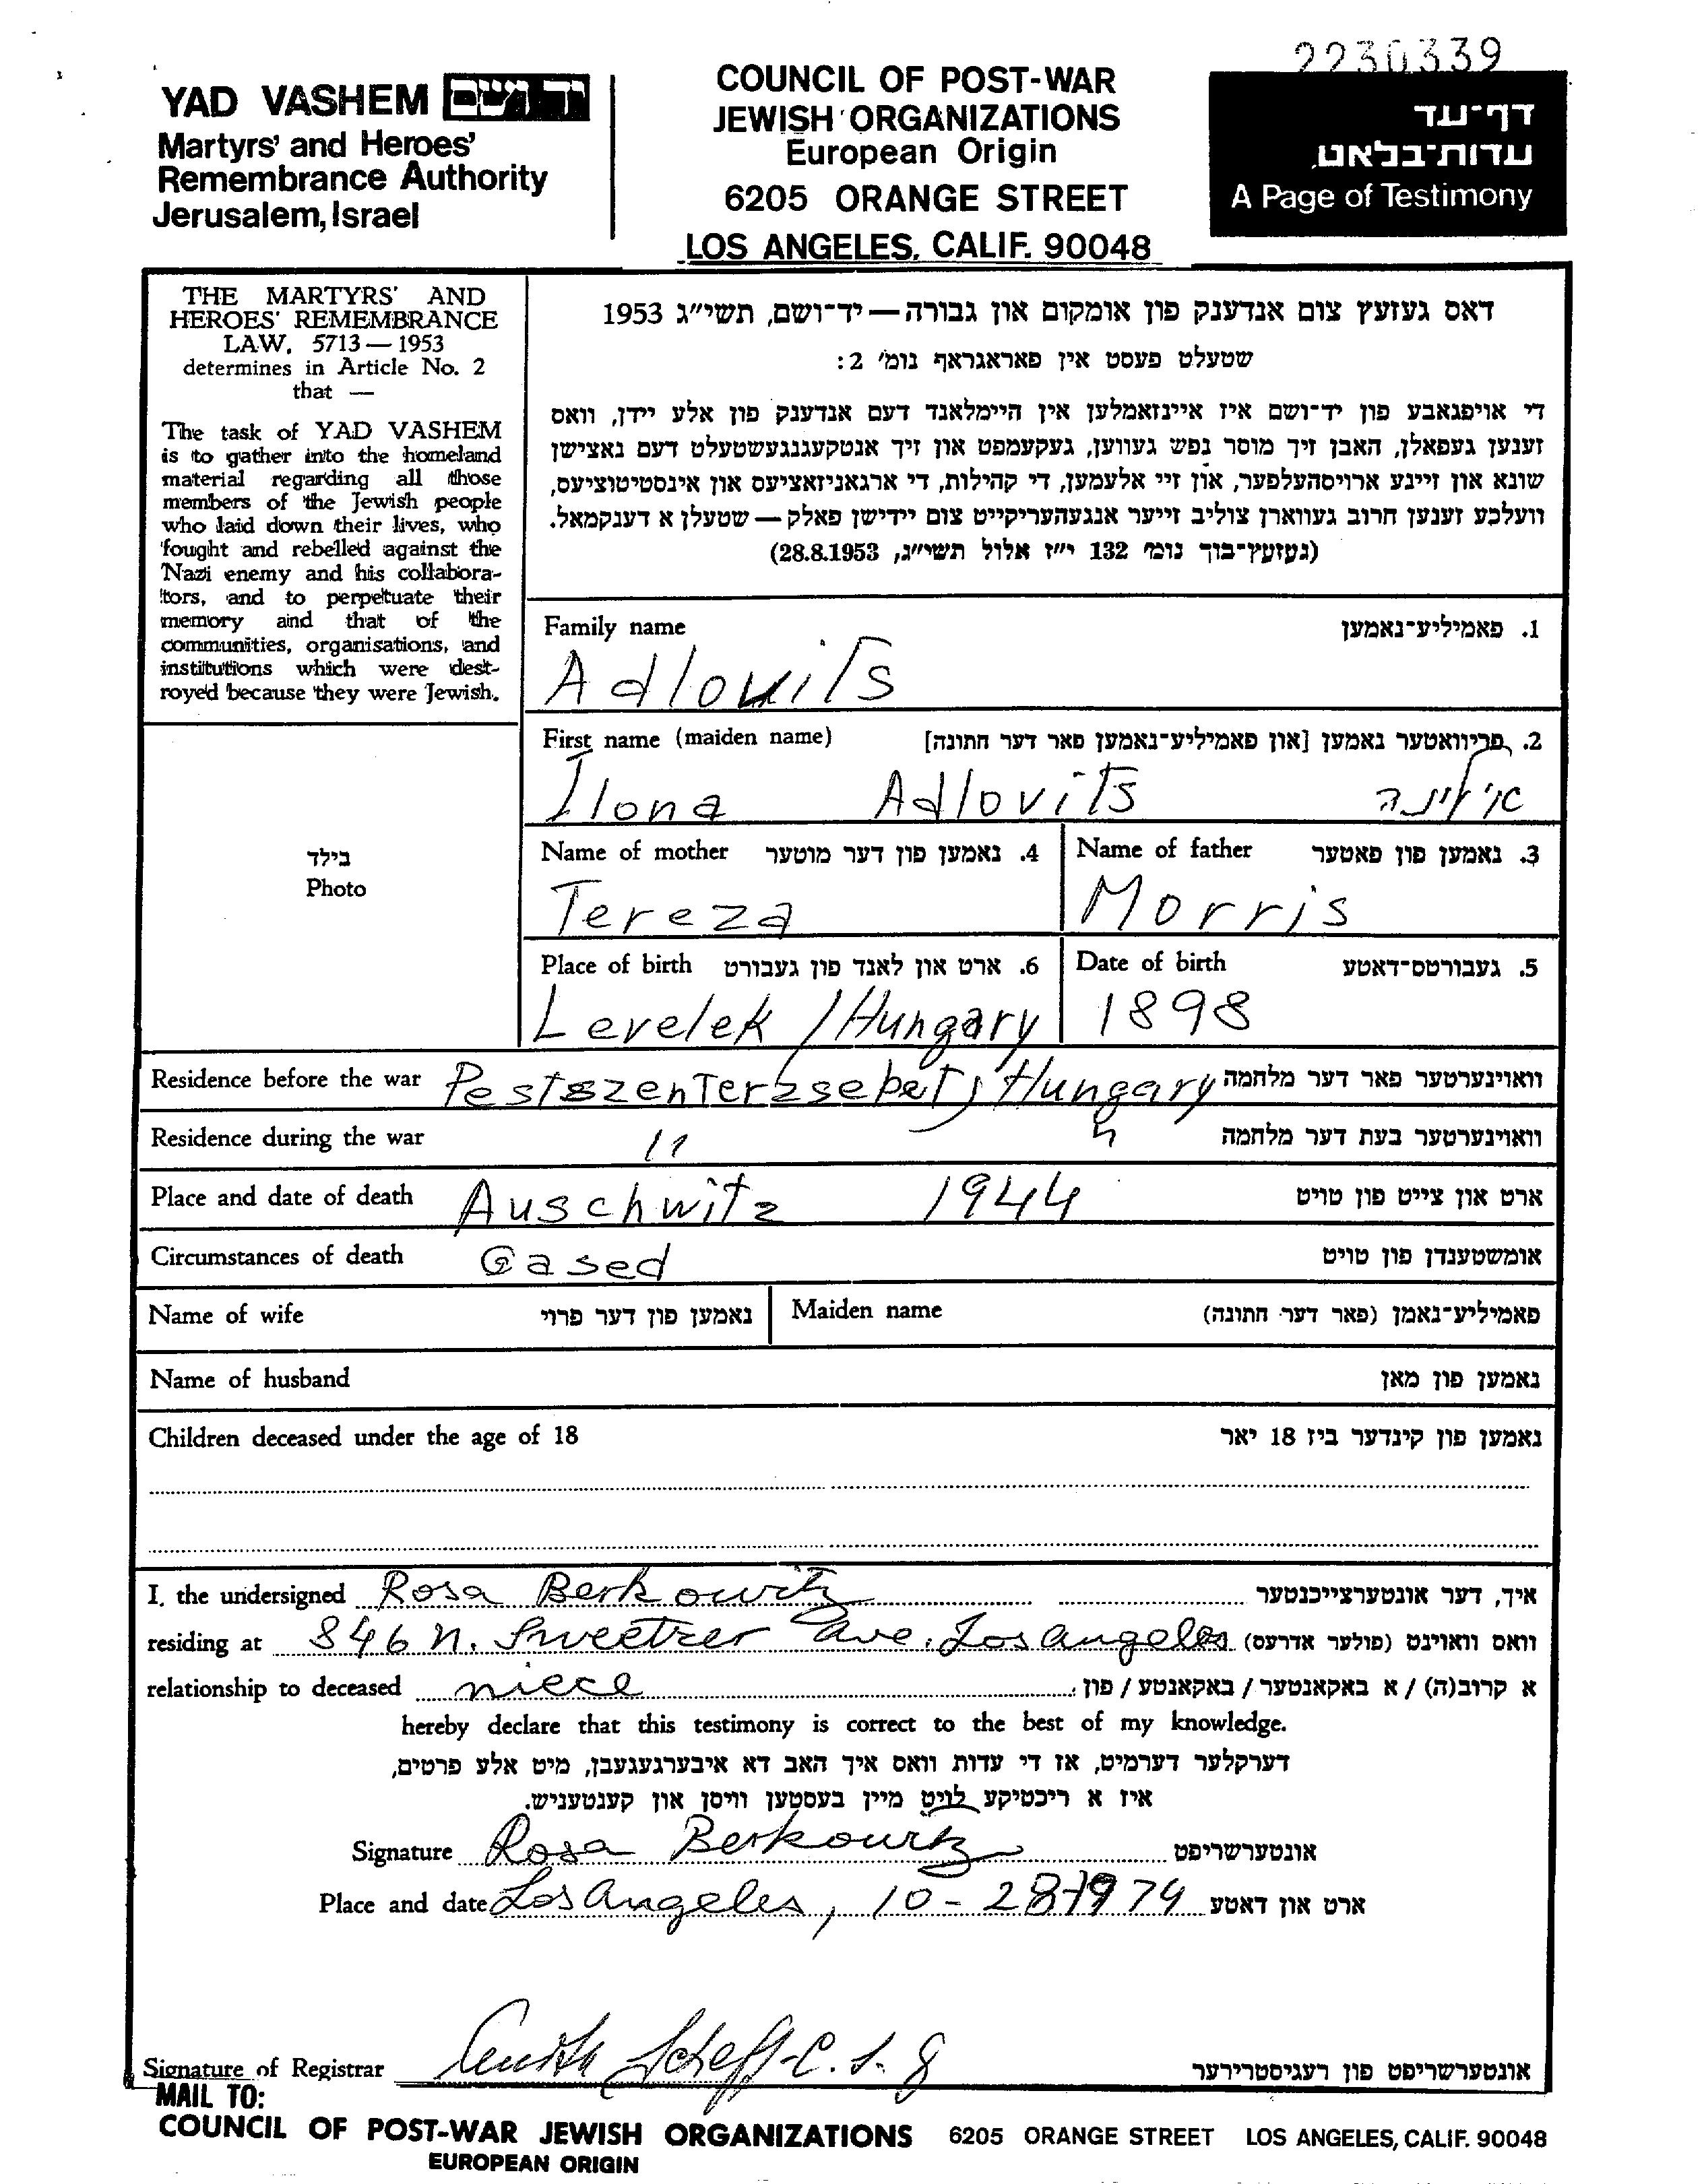 2230339
YAD VASHEM יד ושם
Martyrs' and Heroes'
Remembrance Authority
Jerusalem, Israel
COUNCIL OF POST-WAR
JEWISH ORGANIZATIONS
European Origin
6205 ORANGE STREET
LOS ANGELES, CALIF. 90048
דף-עד
עדות-בלאט
A Page of Testimony
THE MARTYRS' AND
HEROES' REMEMBRANCE
LAW, 5713—1953
determines in Article No. 2
that —
The task of YAD VASHEM
is to gather into the homeland
material regarding all those
members of the Jewish people
who laid down their lives, who
fought and rebelled against the
Nazi enemy and his collabora-
tors, and to perpetuate their
memory and that of the
communities, organisations, and
institutions which were dest-
royed because they were Jewish.
דאס געזעץ צום אנדענק פון אומקום און גבורה — יד-ושם, תשי"ג 1953
שטעלט פעסט אין פאראגראף נומ' 2:
די אויפגאבע פון יד-ושם איז איינזאמלען אין היימלאנד דעם אנדענק פון אלע יידן, וואס
זענען געפאלן, האבן זיך מוסר נפש געווען, געקעמפט און זיך אנטקעגנגעשטעלט דעם נאצישן
שונא און זיינע ארויסהעלפער, און זיי אלעמען, די קהילות, די ארגאניזאציעס און אינסטיטוציעס,
וועלכע זענען חרוב געווארן צוליב זייער אנגעהעריקייט צום יידישן פאלק — שטעלן א דענקמאל.
(געזעץ-בוך נומ' 132 י"ז אלול תשי"ג, 28.8.1953)
Family name 1. פאמיליע-נאמען
Adlovits
First name (maiden name) 2. פריוואטער נאמען [און פאמיליע-נאמען פאר דער חתונה]
Ilona Adlovits אילינה
Name of mother 4. נאמען פון דער מוטער Name of father 3. נאמען פון פאטער
Tereza Morris
Place of birth 6. ארט און לאנד פון געבורט Date of birth 5. געבורטס-דאטע
Levelek / Hungary 1898
בילד
Photo
Residence before the war Pestszenterzsebet, Hungary וואוינערטער פאר דער מלחמה
Residence during the war 11 " וואוינערטער בעת דער מלחמה
Place and date of death Auschwitz 1944 ארט און צייט פון טויט
Circumstances of death Gased אומשטענדן פון טויט
Name of wife נאמען פון דער פרוי Maiden name פאמיליע-נאמן (פאר דער חתונה)
Name of husband נאמען פון מאן
Children deceased under the age of 18 נאמען פון קינדער ביז 18 יאר
I, the undersigned Rosa Berkowitz איך, דער אונטערצייכנטער
residing at 846 N. Sweetzer Ave, Los Angeles וואס וואוינט (פולער אדרעס)
relationship to deceased niece א קרוב(ה) / א באקאנטער / באקאנטע / פון:
hereby declare that this testimony is correct to the best of my knowledge.
דערקלער דערמיט, אז די עדות וואס איך האב דא איבערגעגעבן, מיט אלע פרטים,
איז א ריכטיקע לויט מיין בעסטען וויסן און קענטעניש.
Signature Rosa Berkowitz אונטערשריפט
Place and date Los Angeles, 10-28-1974 ארט און דאטע
Signature of Registrar אונטערשריפט פון רעגיסטרירער
MAIL TO:
COUNCIL OF POST-WAR JEWISH ORGANIZATIONS 6205 ORANGE STREET LOS ANGELES, CALIF. 90048
EUROPEAN ORIGIN